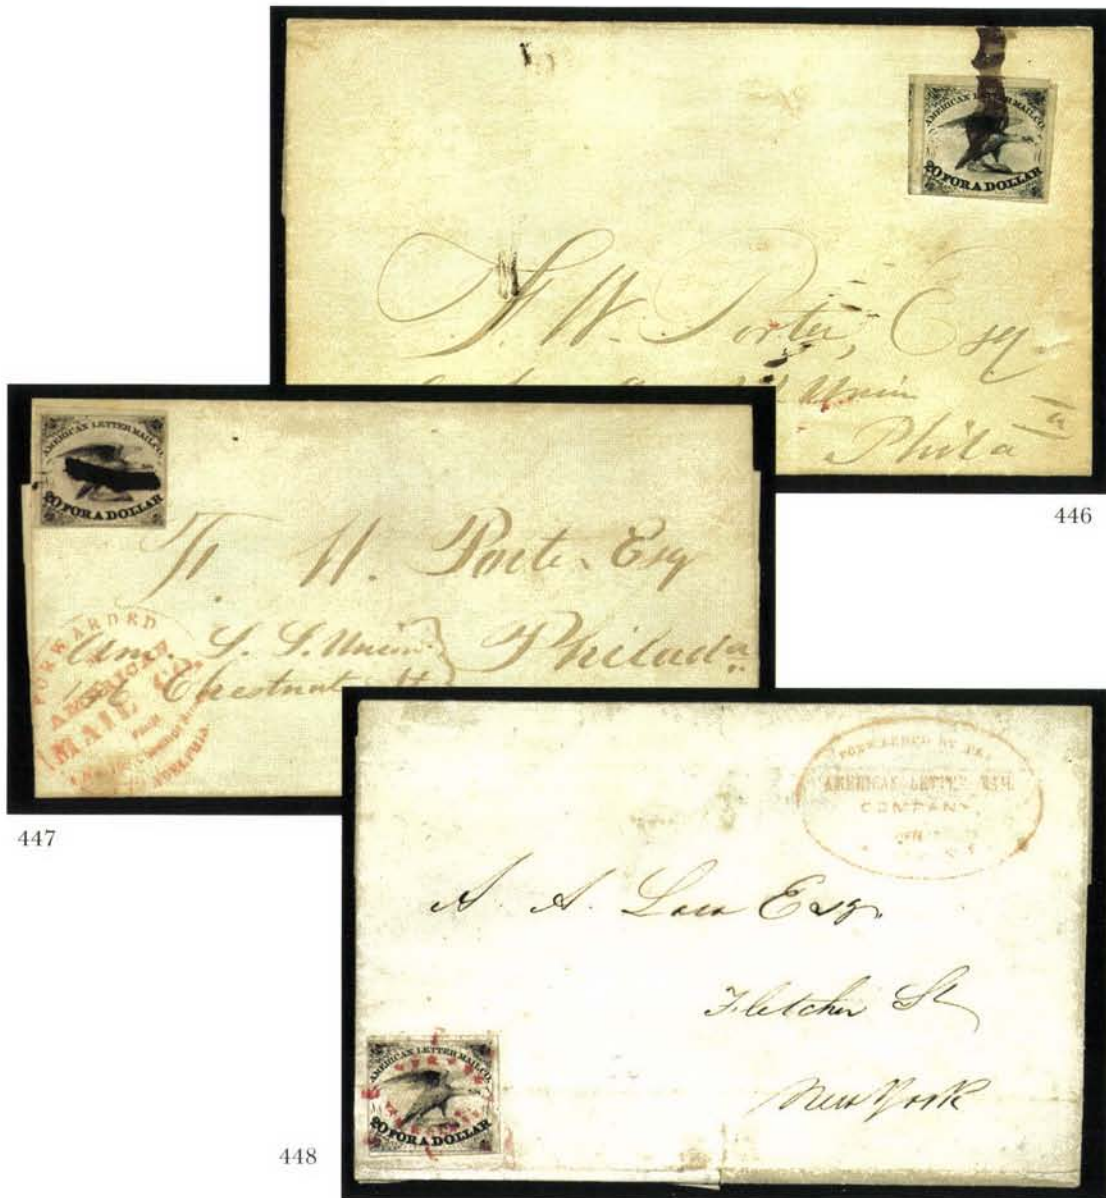 AMERICAN LETTER MAIL CO.
20 FOR A DOLLAR
F. W. Porter, Esq.
Union
Phila
446
AMERICAN LETTER MAIL CO.
20 FOR A DOLLAR
F. W. Porter Esq
Am. S. S. Union
Chestnut St
Philada
FORWARDED
AMERICAN
MAIL CO.
447
FORWARDED BY
AMERICAN LETTER MAIL
COMPANY
A. A. Low Esq.
Fletcher St
New York
AMERICAN LETTER MAIL CO.
20 FOR A DOLLAR
448